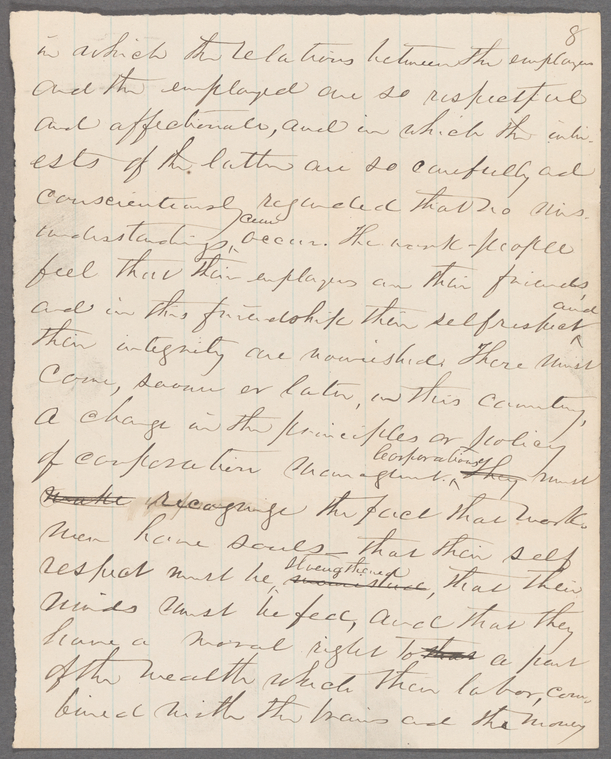 8
in which the relations between the employers
and the employed are so respectful
and affectionate, and in which the inter-
ests of the latter are so carefully ad
conscientiously regarded that no mis-
understandings can occur. The work-people
feel that their employers are their friends
and in this friendship their self respect and
their integrity are nourished. There must
come, sooner or later, in this country,
a change in the principles or policy
of corporation management. Corporations they must
make recognize the fact that work-
men have souls — that their self
respect must be strengthened nourished, that their
minds must be fed, and that they
have a moral right to that a part
of the wealth which their labor, com-
bined with the brains and the money